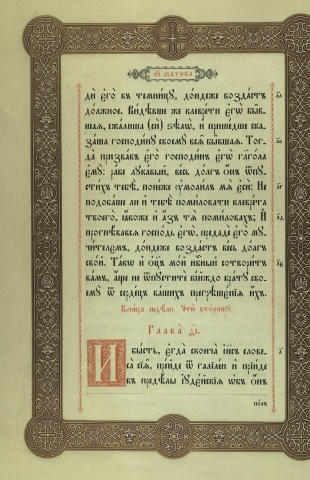 Ѿ МАТѲЕА
дѝ є҆гѡ̀ въ темни́цꙋ, до́ндеже возда́стъ
до́лжное. Ви́дѣвше же клеврѐти є҆гѡ̀ бы́в-
шаѧ, сжа́лиша (си) ѕѣлѡ̀, и҆ прише́дше ска-
за́ша господи́нꙋ своемꙋ̀ всѧ̑ бы́вшаѧ. Тог-
да̀ призва́въ є҆го̀ господи́нъ є҆гѡ̀ глаго́ла
є҆мꙋ̀: ра́бе лꙋка́вый, ве́сь до́лгъ ѻ҆́нъ ѿпꙋ-
сти́хъ тебѣ̀, поне́же ᲂу҆моли́лъ мѧ̀ є҆сѝ: Не
подоба́ше ли и҆ тебѣ̀ поми́ловати клевре́та
твоего̀, ꙗ҆́коже и҆ а҆́зъ тѧ̀ поми́ловахъ; И҆
прогнѣ́вавсѧ госпо́дь є҆гѡ̀, предадѐ є҆го̀ мꙋ-
чи́телємъ, до́ндеже возда́стъ ве́сь до́лгъ
сво́й. Та́кѡ и҆ ѻ҆ц҃ъ мо́й нбⷭ҇ный сотвори́тъ
ва́мъ, а҆́ще не ѿпꙋститѐ кі́йждо бра́тꙋ сво-
емꙋ̀ ѿ серде́цъ ва́шихъ прегрѣшє́нїѧ и҆́хъ.
Коне́цъ недѣ́ли. Чтѝ вто́рникꙋ
Глава̀ ѳ҃і.
И҆ бы́сть, є҆гда̀ сконча̀ і҆и҃съ словеса̀
сїѧ̑, пре́йде ѿ галїле́и и҆ прїи́де
въ предѣ́лы і҆ꙋде́йскїѧ ѡ҆б̾ ѻ҆́нъ
по́лъ